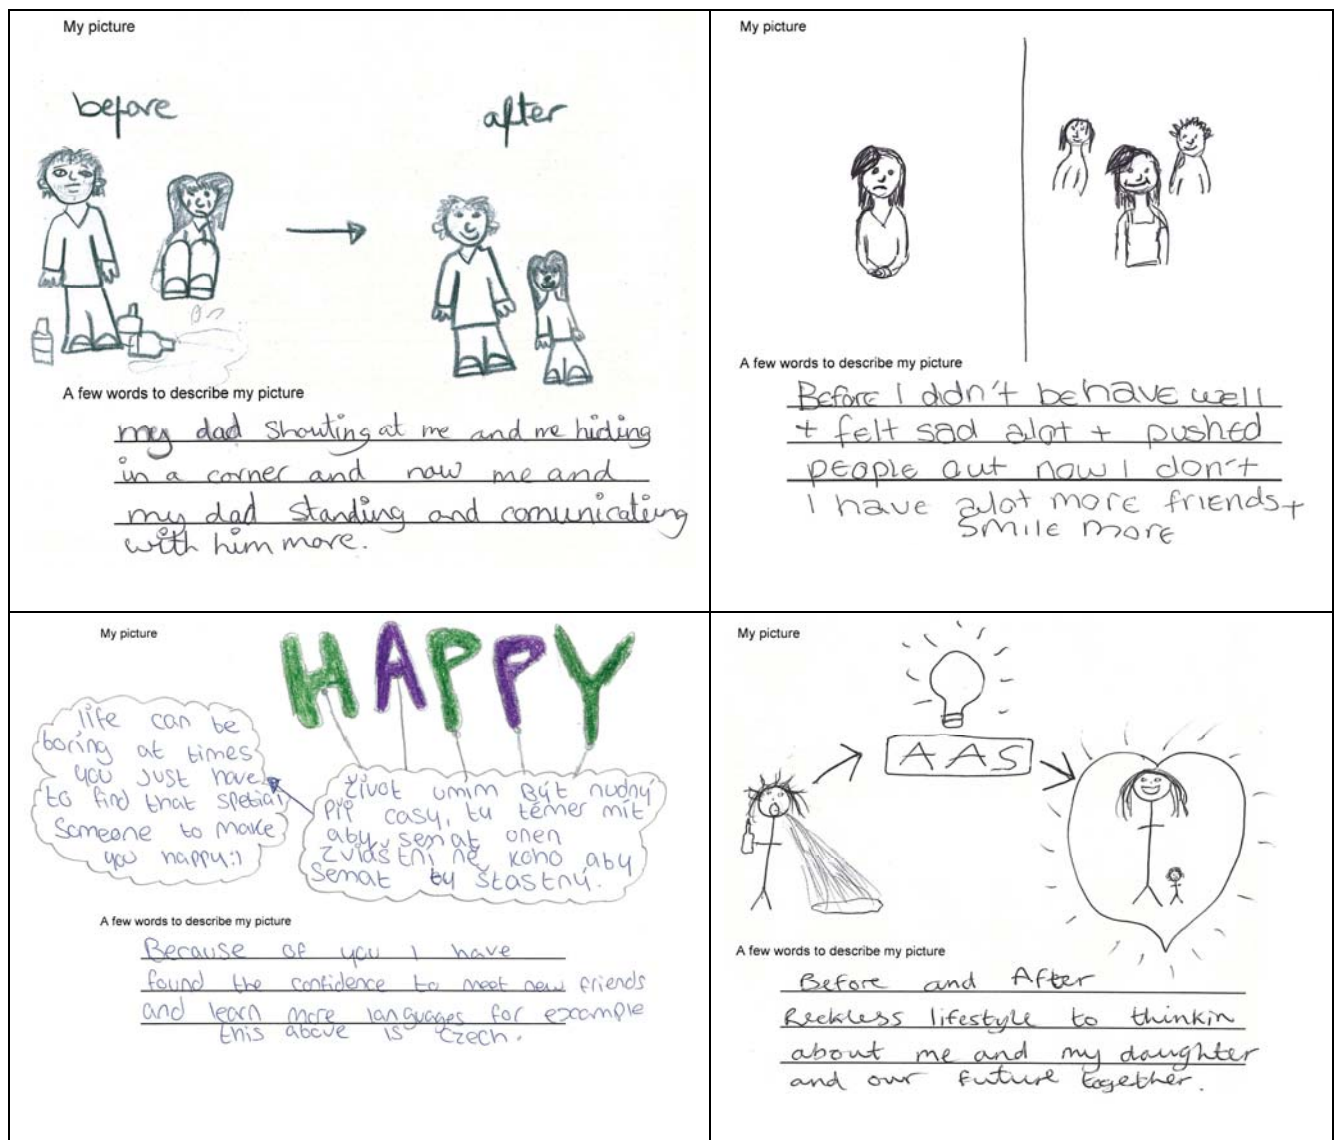 My picture
before
after
A few words to describe my picture
my dad shouting at me and me hiding
in a corner and now me and
my dad standing and comunicateing
with him more.
My picture
A few words to describe my picture
Before I didn't behave well
+ felt sad alot + pushed
people out now I don't
I have alot more friends +
smile more
My picture
HAPPY
life can be
boring at times
you just have
to find that spetial
someone to make
you happy:)
Život umím být nudný
při casy, tu témer mít
aby senat onen
zvláštní ně koho aby
senat ty štastný.
A few words to describe my picture
Because of you I have
found the confidence to meet new friends
and learn more languages for excample
this above is Czech.
My picture
AAS
A few words to describe my picture
Before and After
Reckless lifestyle to thinkin
about me and my daughter
and our future together.